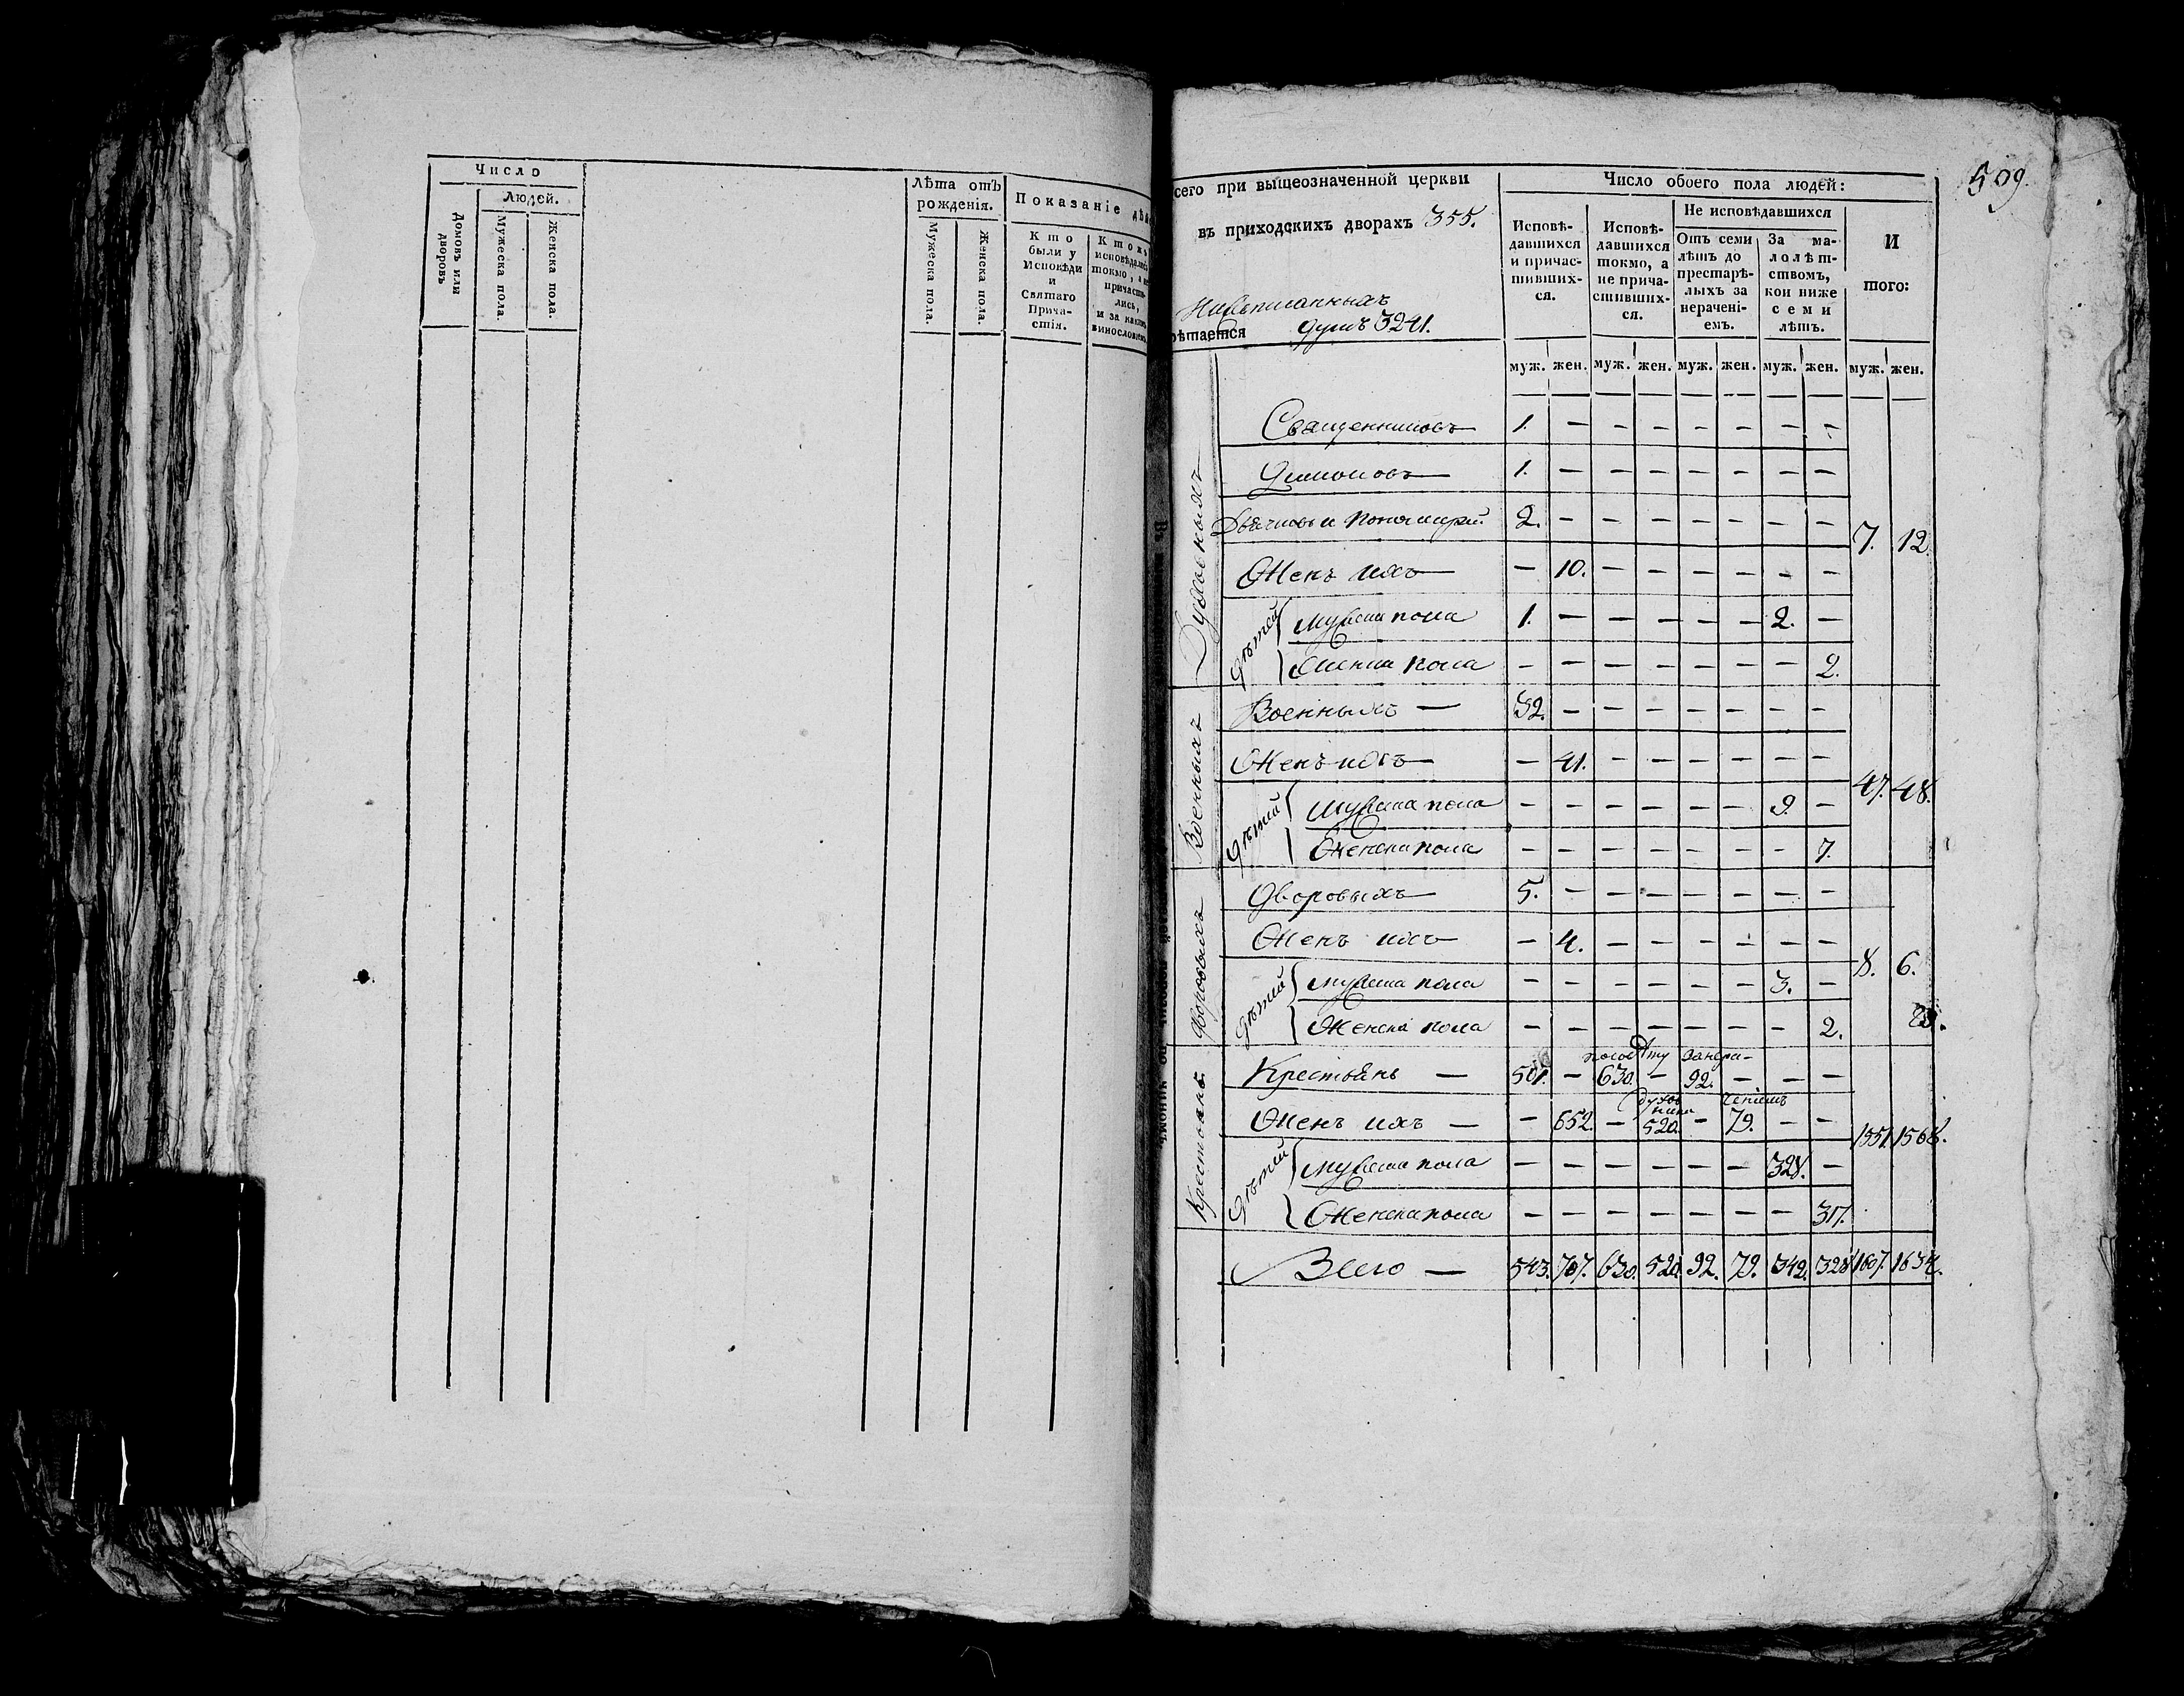 Число
Людей.
Домовъ или дворовъ
Мужеска пола.
Женска пола.
Лѣта отъ рожденія.
Мужеска пола.
Женска пола.
Показаніе
Кто были у Исповѣди и Святаго Прича-стія.
исповѣдались токмо, а не причасти-лись, и за какимъ винословіемъ
509.
сего при вышеозначенной церкви
въ приходскихъ дворахъ 355.
душъ 3241.
рѣтается
Число обоего пола людей:
Исповѣ-давшихся и причас-тивших-ся.
Исповѣ-давшихся токмо, а не прича-стивших-ся.
Не исповѣдавшихся
Отъ семи лѣтъ до престарѣ-лыхъ за нерачені-емъ.
За ма-лолѣт-ствомъ, кои ниже семи лѣтъ.
И того:
муж. жен. муж. жен. муж. жен. муж. жен. муж. жен.
Духовныхъ
Священниковъ 1. — — — — — — —
Диаконовъ 1. — — — — — — —
Дьячковъ и Пономарей 2. — — — — — — —
7. 12.
Женъ ихъ — 10. — — — — — —
Дѣтей
Мужеска пола 1. — — — — — 2. —
Женска пола — — — — — — — 2.
Военныхъ
Военныхъ — — — — — — —
Женъ ихъ — 41. — — — — — —
47. 48.
Дѣтей
Мужеска пола — — — — — — 9. —
Женска пола — — — — — — — 7.
Дворовыхъ
Дворовыхъ 5. — — — — — — —
Женъ ихъ — 4. — — — — — —
8. 6.
Дѣтей
Мужеска пола — — — — — — 3. —
Женска пола — — — — — — — 2.
Крестьянъ
посовѣту занера-
Крестьянъ — 501. — 630. — 92. — — —
духовника ченіемъ
Женъ ихъ — — 652. — 520. — 79. — —
1551. 1568.
Дѣтей
Мужеска пола — — — — — — 328. —
Женска пола — — — — — — — 317.
Всего — 543. 707. 630. 520. 92. 79. 342. 328. 1607. 1634.